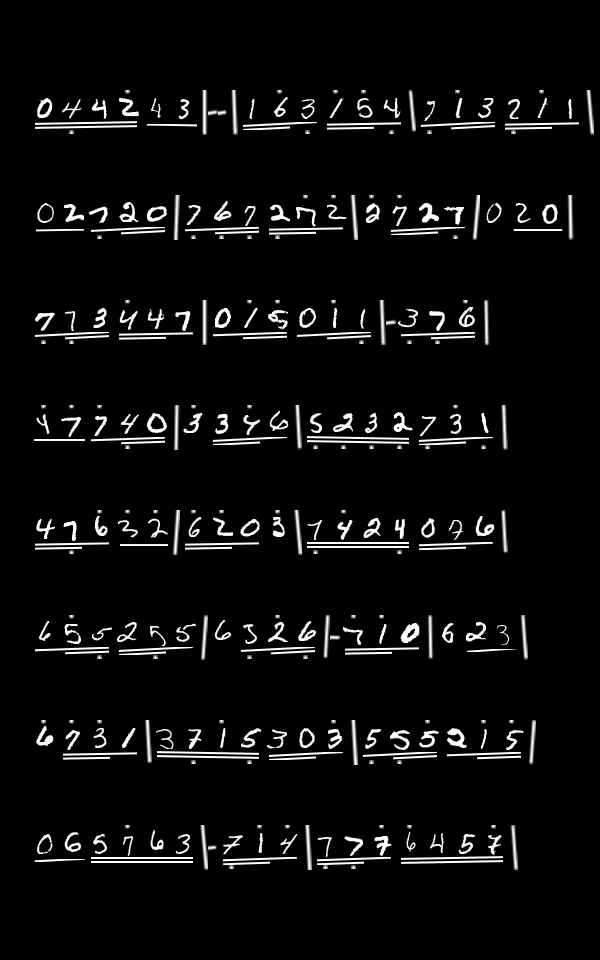 044243|--|163154|713211|
02720|767272|2727|020|
773447|015011|-376|
47740|3346|5232|731|
47632|6203|7424076|
655255|6526|-710|623|
6731|3715303|555215|
065763|-714|7776457|